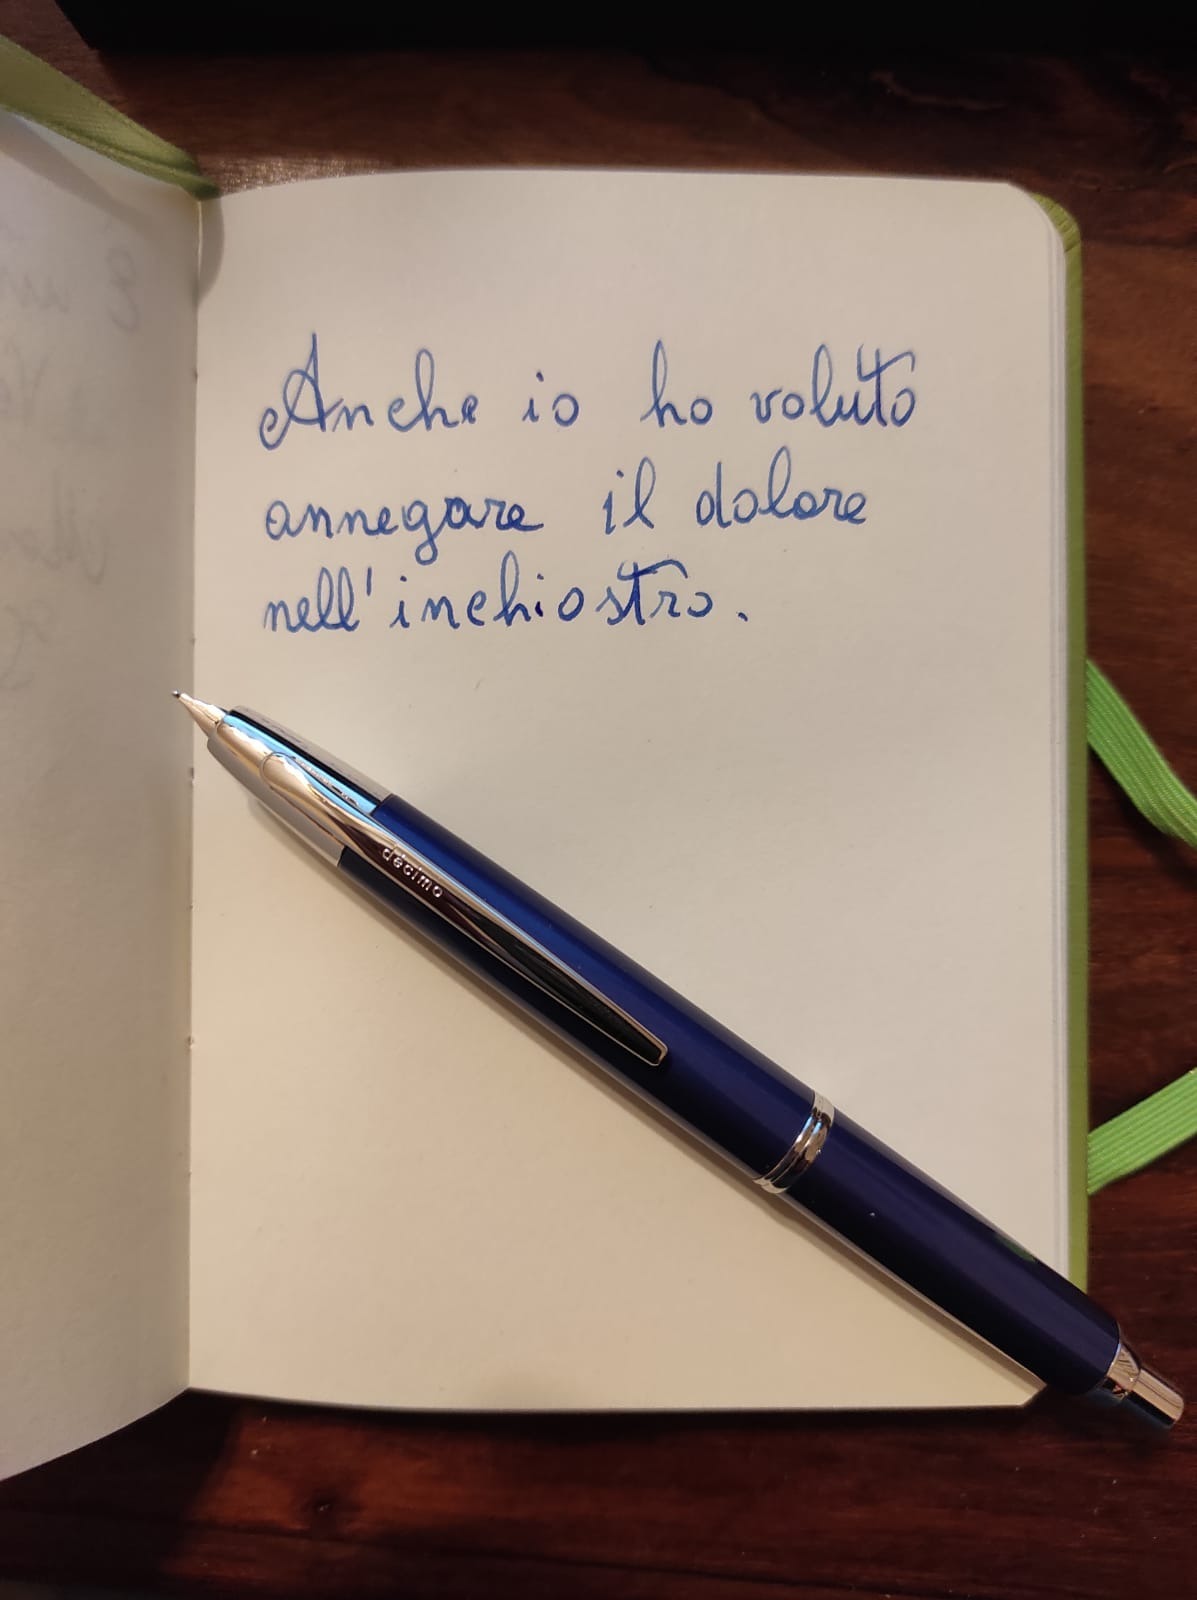 Anche io ho voluto
annegare il dolore
nell'inchiostro.
décimo